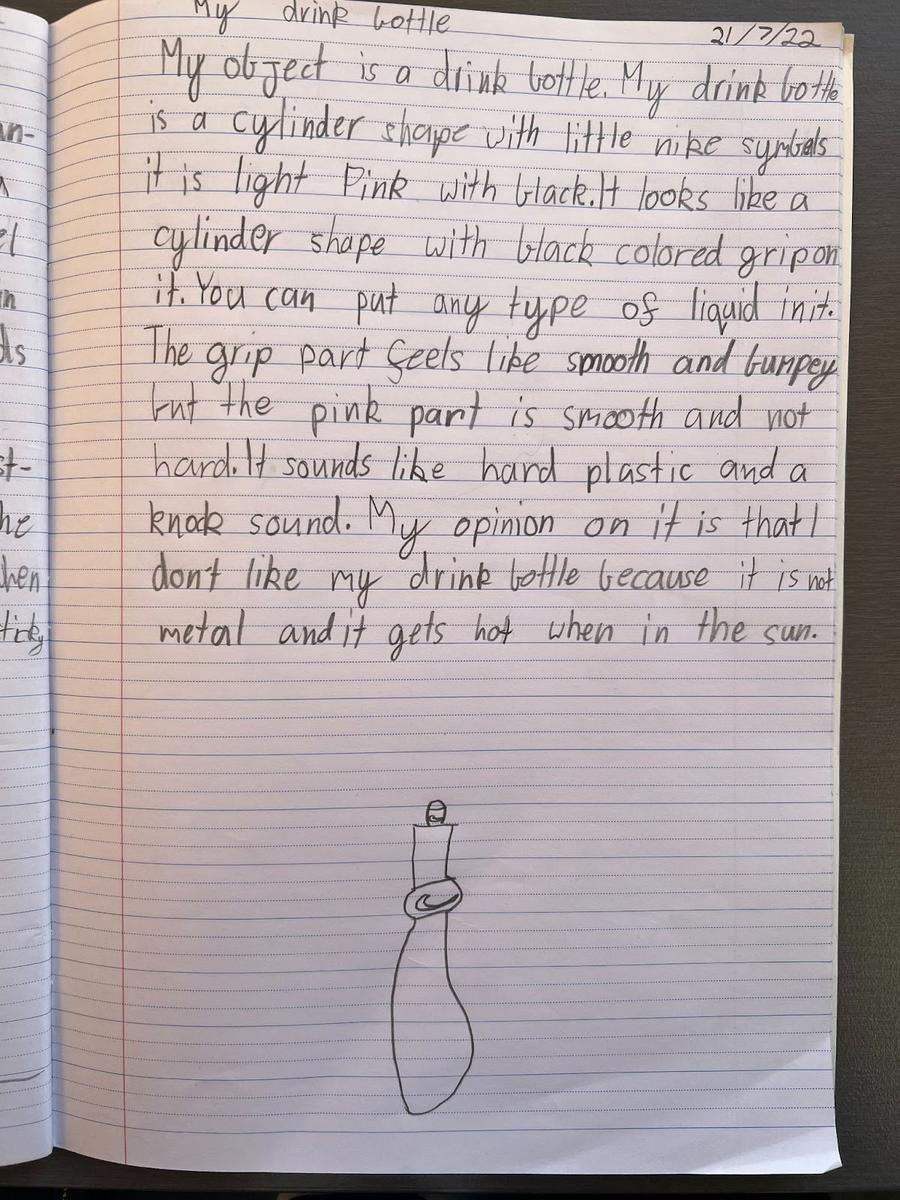 My drink bottle
21/7/22
My object is a drink bottle. My drink bottle
is a cylinder shape with little nike symbols
it is light Pink with black. It looks like a
cylinder shape with black colored grip on
it. You can put any type of liquid in it.
The grip part feels like smooth and bumpey
but the pink part is smooth and not
hard. It sounds like hard plastic and a
knock sound. My opinion on it is that I
don't like my drink bottle because it is not
metal and it gets hot when in the sun.